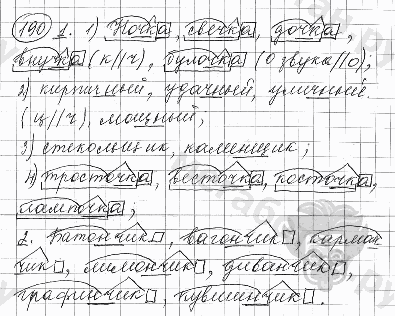 190 1. 1) Ночка, свечка, дочка,
внучка (к//ч), булочка (о звука//о);
2) кирпичный, удачный, уличный
(ц//ч), мощный;
3) стекольщик, каменщик;
4) тросточка, весточка, косточка,
лампочка;
2. Батончик, вагончик, карман
чик, лимончик, диванчик,
графинчик, кувшинчик.